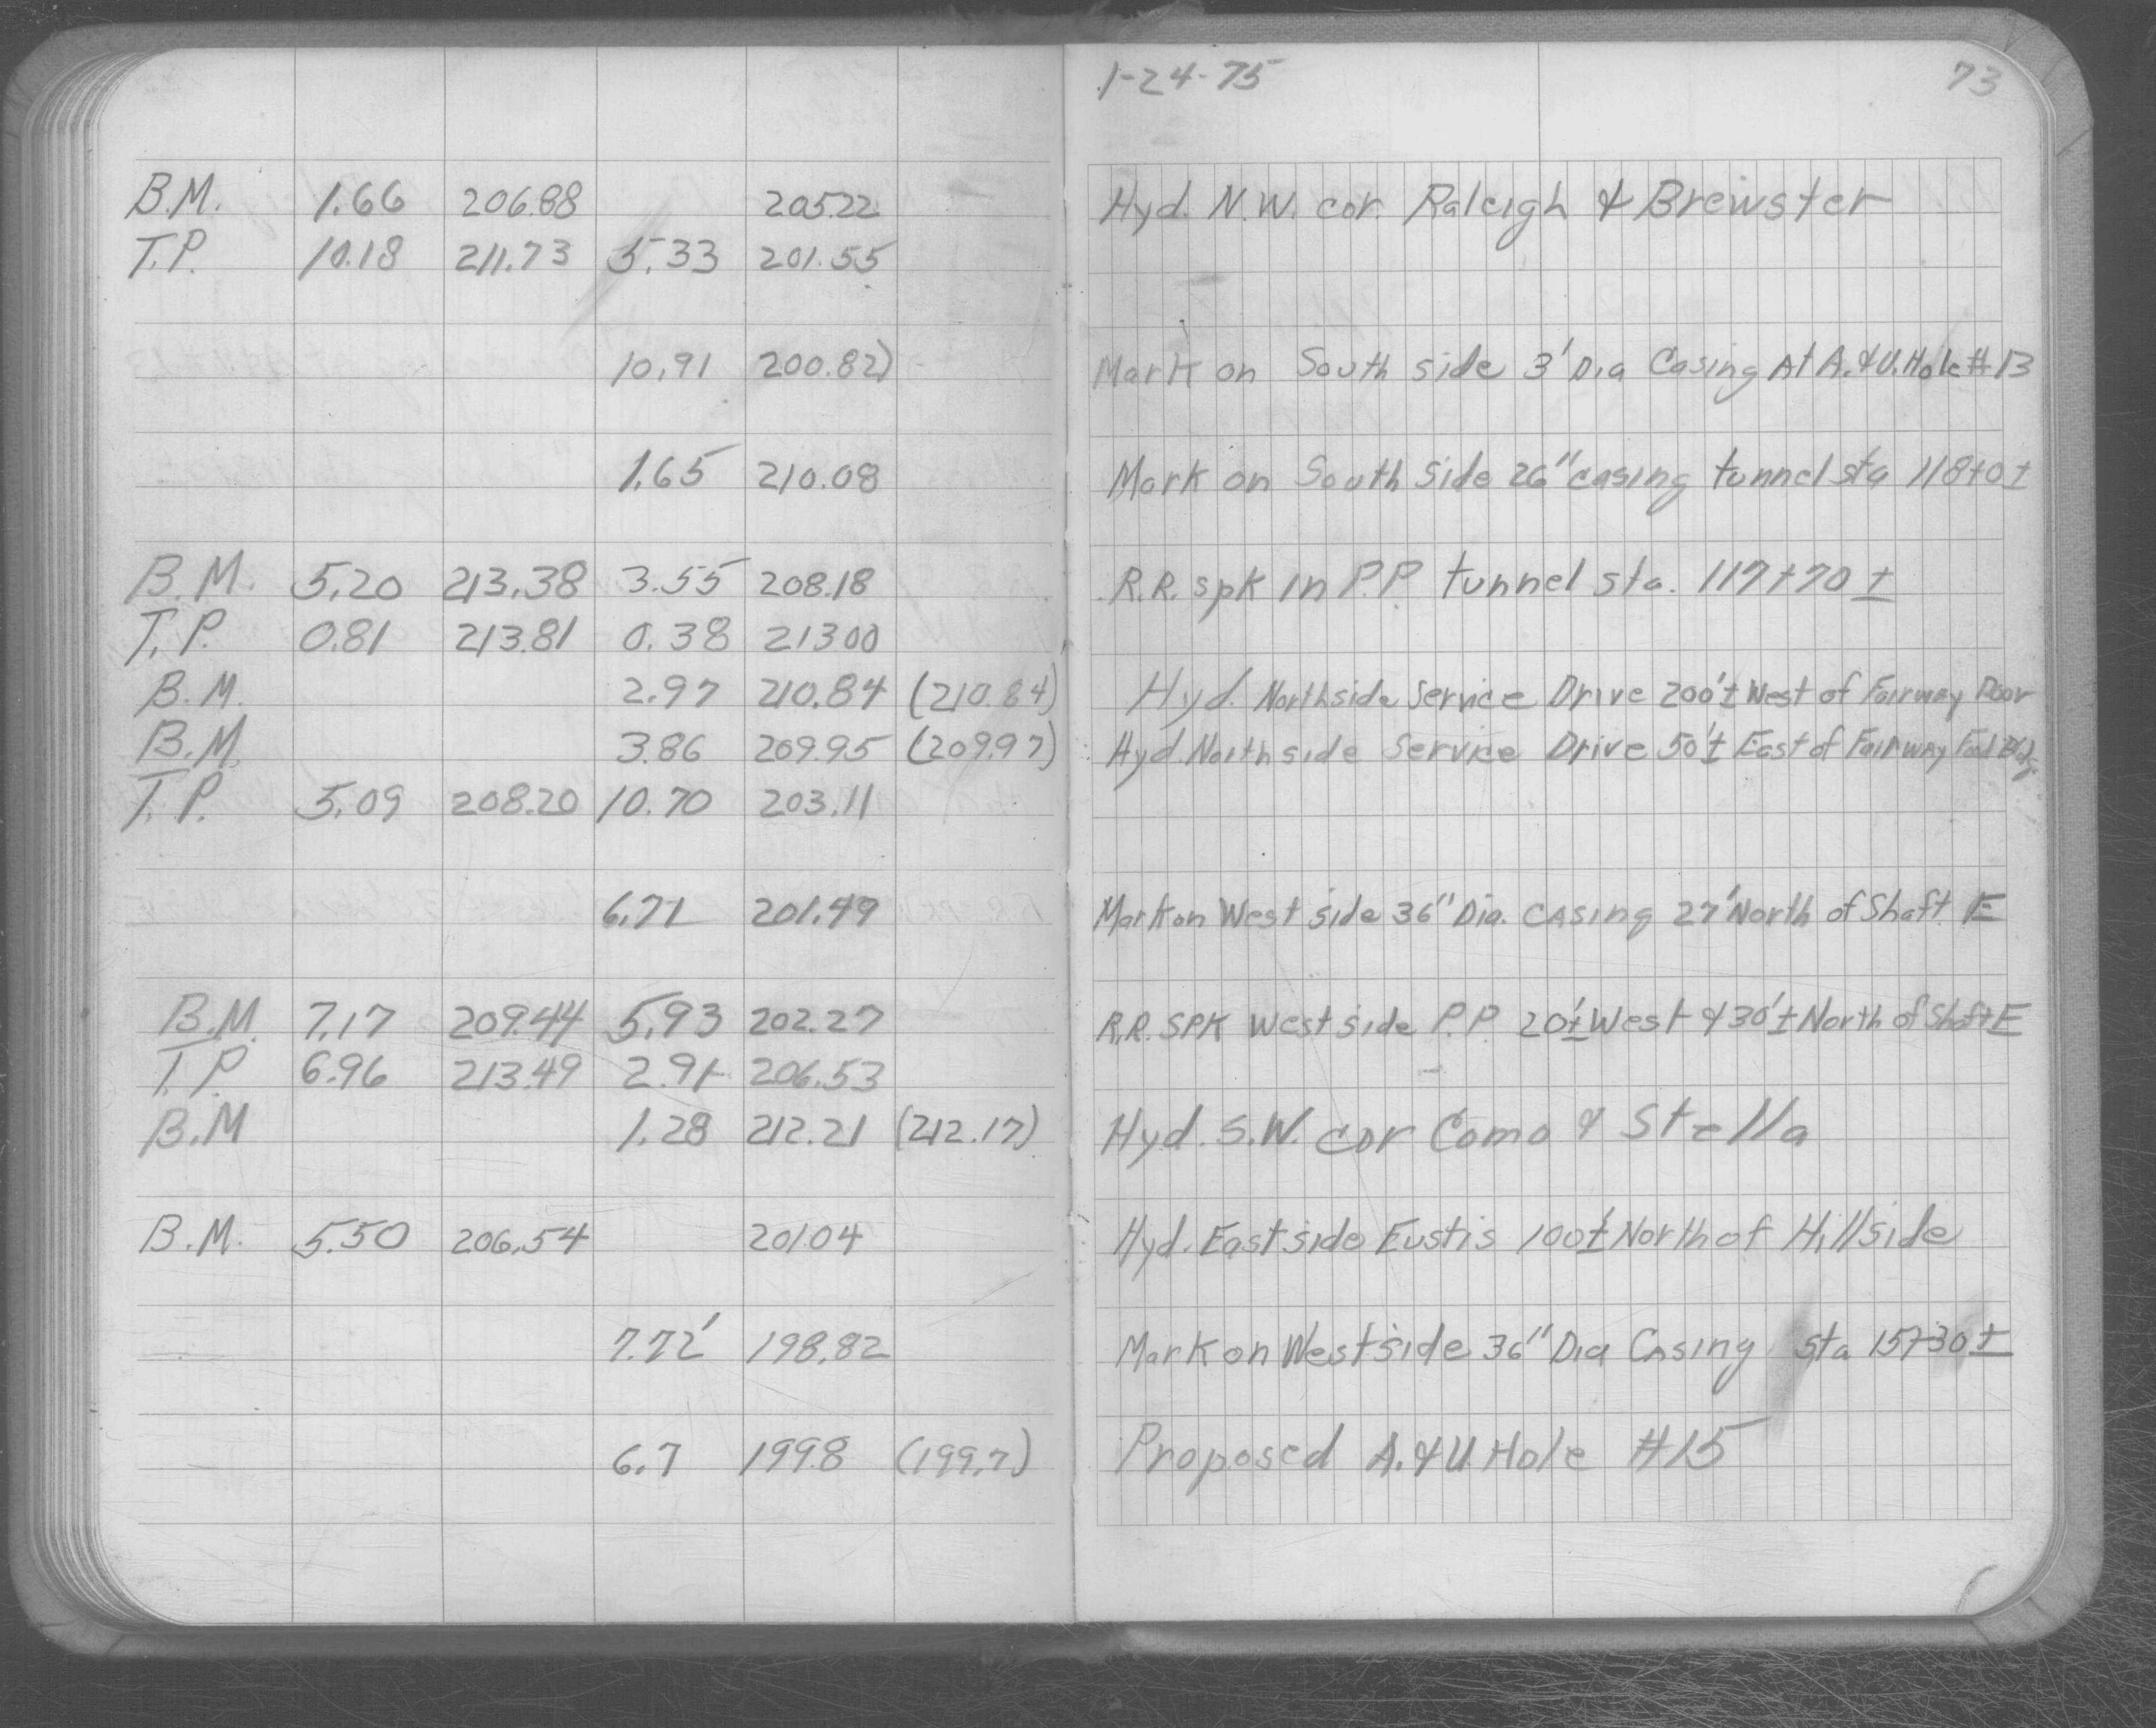 1-24-75 73
B.M. 1.66 206.88 205.22 Hyd. N.W. cor. Raleigh & Brewster
T.P. 10.18 211.73 5.33 201.55
10.91 200.82) Mark on South side 3' Dia Casing At A.&U. Hole #13
1.65 210.08 Mark on South Side 26" casing tunnel sta 118+0±
B.M. 5.20 213.38 3.55 208.18 R.R. spk in P.P. tunnel sta. 117+70±
T.P. 0.81 213.81 0.38 213.00
B.M. 2.97 210.84 (210.84) Hyd. Northside Service Drive 200'± West of Fairway Door
B.M. 3.86 209.95 (209.97) Hyd. Northside Service Drive 50'± East of Fairway Food Bldg.
T.P. 5.09 208.20 10.70 203.11
6.71 201.49 Mark on West side 36" Dia. Casing 27' North of Shaft E
B.M. 7.17 209.44 5.93 202.27 R.R. SPK West side P.P. 20'± West & 30'± North of Shaft E
T.P. 6.96 213.49 2.91 206.53
B.M 1.28 212.21 (212.17) Hyd. S.W. cor Como & Stella
B.M. 5.50 206.54 201.04 Hyd. East side Eustis 100'± North of Hillside
7.72' 198.82 Mark on West side 36" Dia Casing sta 15+30±
6.7 199.8 (199.7) Proposed A.&U. Hole #15